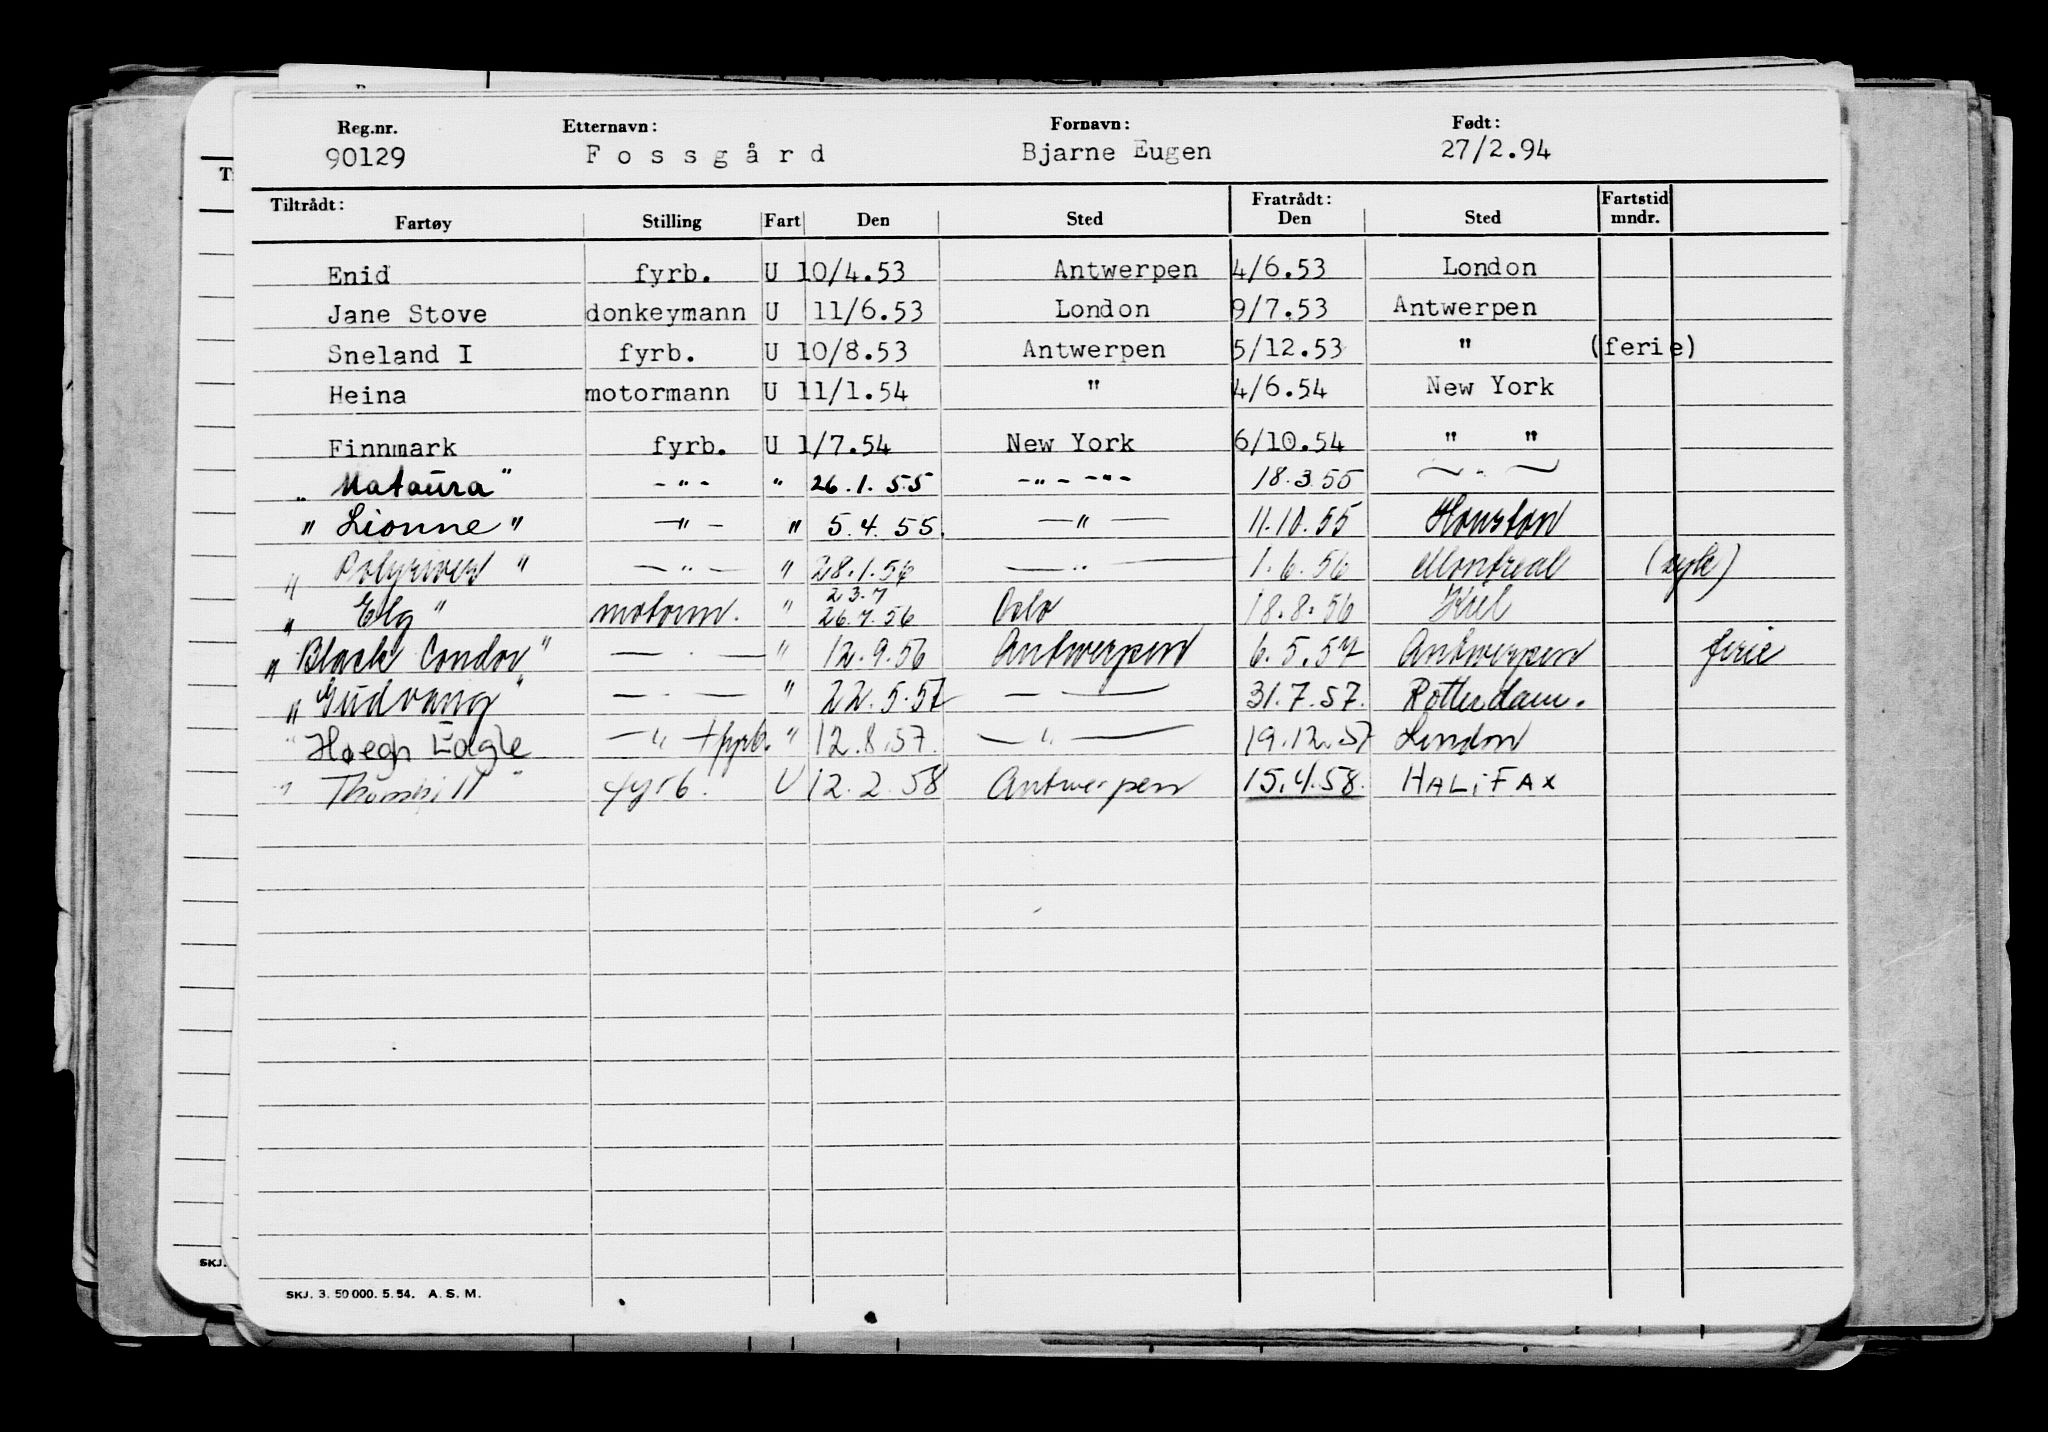 Reg.nr. Etternavn: Fornavn: Født:
90129 Fossgård Bjarne Eugen 27/2.94
Tiltrådt: Fratrådt: Fartstid
Fartøy Stilling Fart Den Sted Den Sted mndr.
Enid fyrb. U 10/4.53 Antwerpen 4/6.53 London
Jane Stove donkeymann U 11/6.53 London 9/7.53 Antwerpen
Sneland I fyrb. U 10/8.53 Antwerpen 5/12.53 " (ferie)
Heina motormann U 11/1.54 " 4/6.54 New York
Finnmark fyrb. U 1/7.54 New York 6/10.54 " "
"Mataura" -"- " 26.1.55 -"- -"- 18.3.55 — " —
"Lionne" —"— " 5.4.55. —"— 11.10.55 Houston
"Polyriver" —"— " 28.1.56 —"— 1.6.56 Montreal (syk)
23.7
"Elg" motorm. " 26.7.56 Oslo 18.8.56 Kiel
"Black Condor" —"— " 12.9.56 Antwerpen 6.5.57 Antwerpen ferie
"Gudvang" —"— " 22.5.57 —"— 31.7.57. Rotterdam.
" Høegh Eagle —"— + fyrb. " 12.8.57. —"— 19.12.57 London
" " fyrb. U 12.2.58 Antwerpen 15.4.58. HALiFAX
SKJ. 3. 50 000. 5. 54. A. S. M.
SKJ.